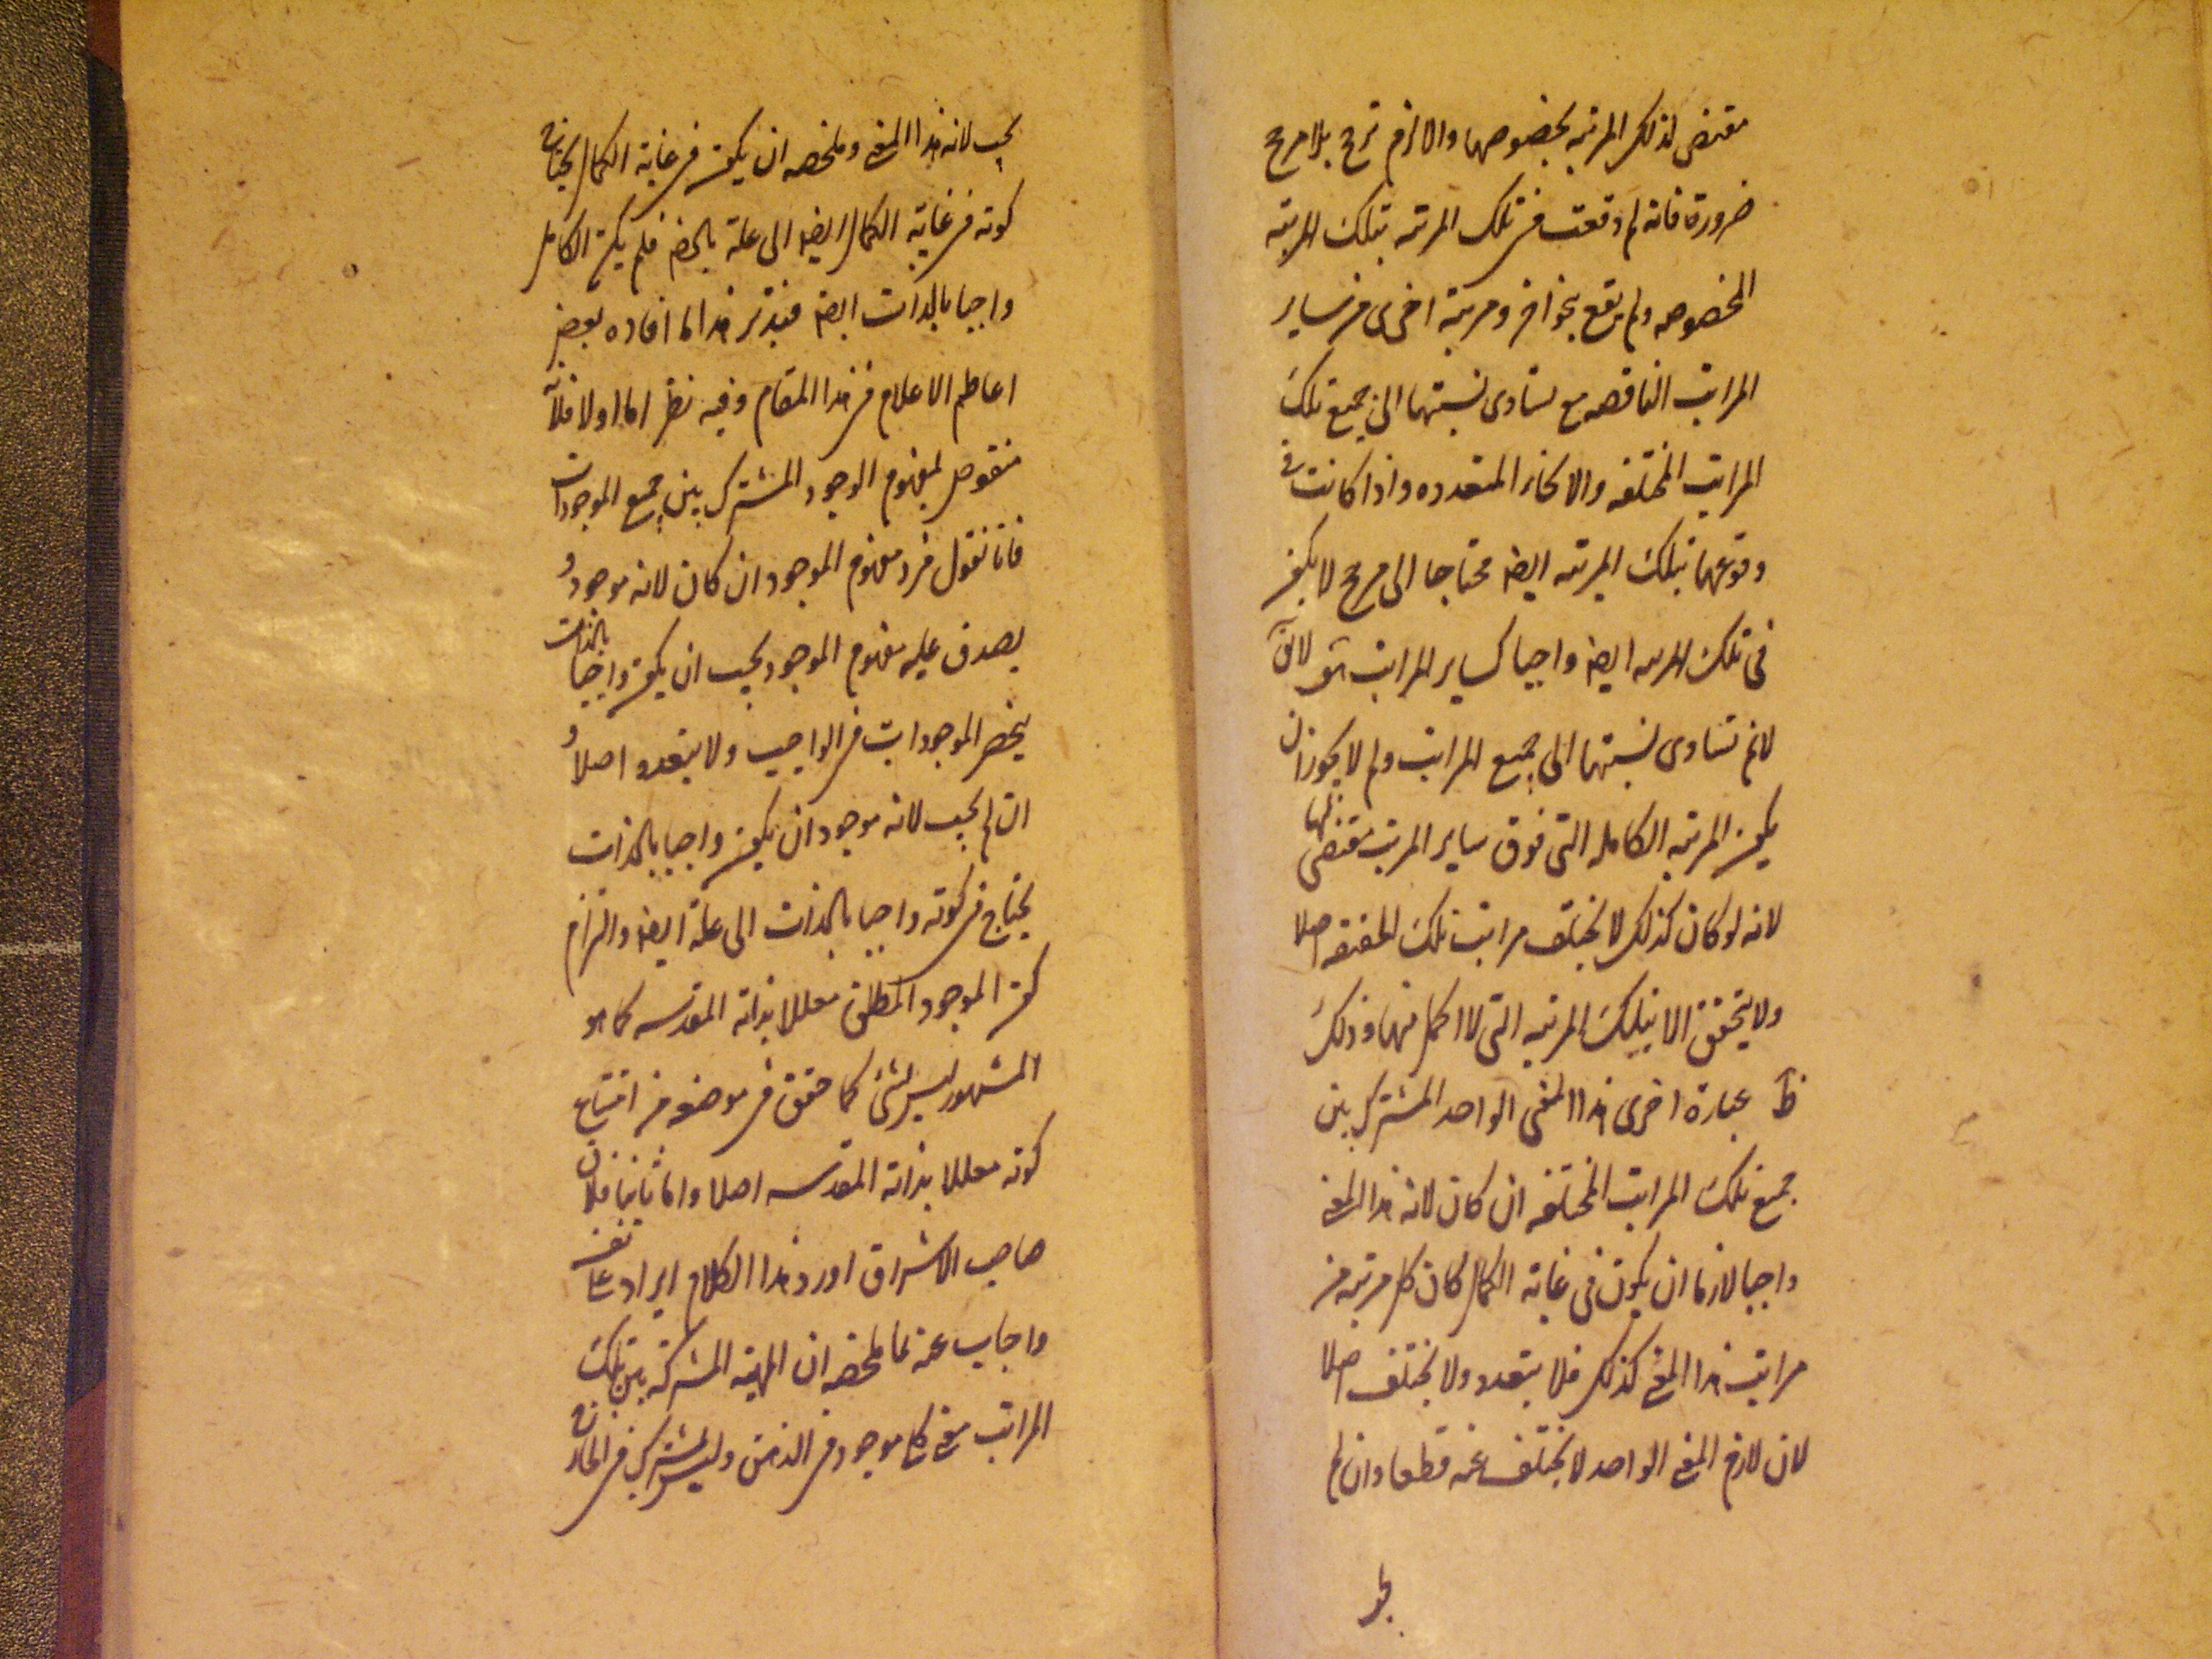 مقتض لذلك المرتبه بخصوصها والا لزم ترجح بلا مرجح
ضرورة فانه لم وقعت فى تلك المرتبه بتلك المرتبه
المخصوصه ولم يقع بنحو اخر ومرتبة اخرى من ساير
المراتب الناقصه مع تساوى نسبتها الى جميع تلك
المراتب المختلفه والانحاء المتعدده واذا كانت فى
وقوعها بتلك المرتبه ايضا محتاجا الى مرجح لا يكون
فى تلك المرتبه ايضا واجبا كساير المراتب لا يق
لانم تساوى نسبتها الى جميع المراتب ولم لا يجوز ان
يكون المرتبه الكامله التى فوق ساير المراتب مقتضى لها
لانه لو كان كذلك لا يختلف مراتب تلك الحقيقه اصلا
ولا يتحقق الا بتلك المرتبه التى لا اكمل منها وذلك
ظ بعبارة اخرى هذا المعنى الواحد المشترك بين
جميع تلك المراتب المختلفه ان كان لانه هذا المعنى
واجبا لازما ان يكون فى غاية الكمال كان كل مرتبه من
مراتب هذا المعنى كذلك فلا يتعدد ولا يختلف اصلا
لان لازم المعنى الواحد لا يختلف عنه قطعا وان لم
يجب
يجب لانه هذا المعنى وملخصه ان يكون فى غاية الكمال يحتاج
كونه فى غاية الكمال ايضا الى علة بالضرر فلم يكن الكامل
واجبا بالذات ايضا فتدبر هذا ما افاده بعض
اعاظم الاعلام فى هذا المقام وفيه نظر اما اولا فلانه
منقوض بمفهوم الوجود المشترك بين جميع الموجودات
فانا نقول فرد مفهوم الموجود ان كان لانه موجود و
يصدق عليه مفهوم الموجود يجب ان يكون واجبا بالذات
ينحصر الموجودات فى الواجب ولا يتعدد اصلا و
ان لم يجب لانه موجود ان يكون واجبا بالذات
يحتاج فى كونه واجبا بالذات الى علة ايضا والتزام
كون الموجود المطلق معللا بذاته المقدسه كما هو
المشهور ليس بشئ كما حقق فى موضعه من امتناع
كونه معللا بذاته المقدسه اصلا واما ثانيا فلان
صاحب الاشراق اورد هذا الكلام ايراد على نفسه
واجاب عنه بما ملخصه ان المهية المشتركه بين تلك
المراتب معنى كلى موجود فى الذهن وليس المشترك فى الخارج